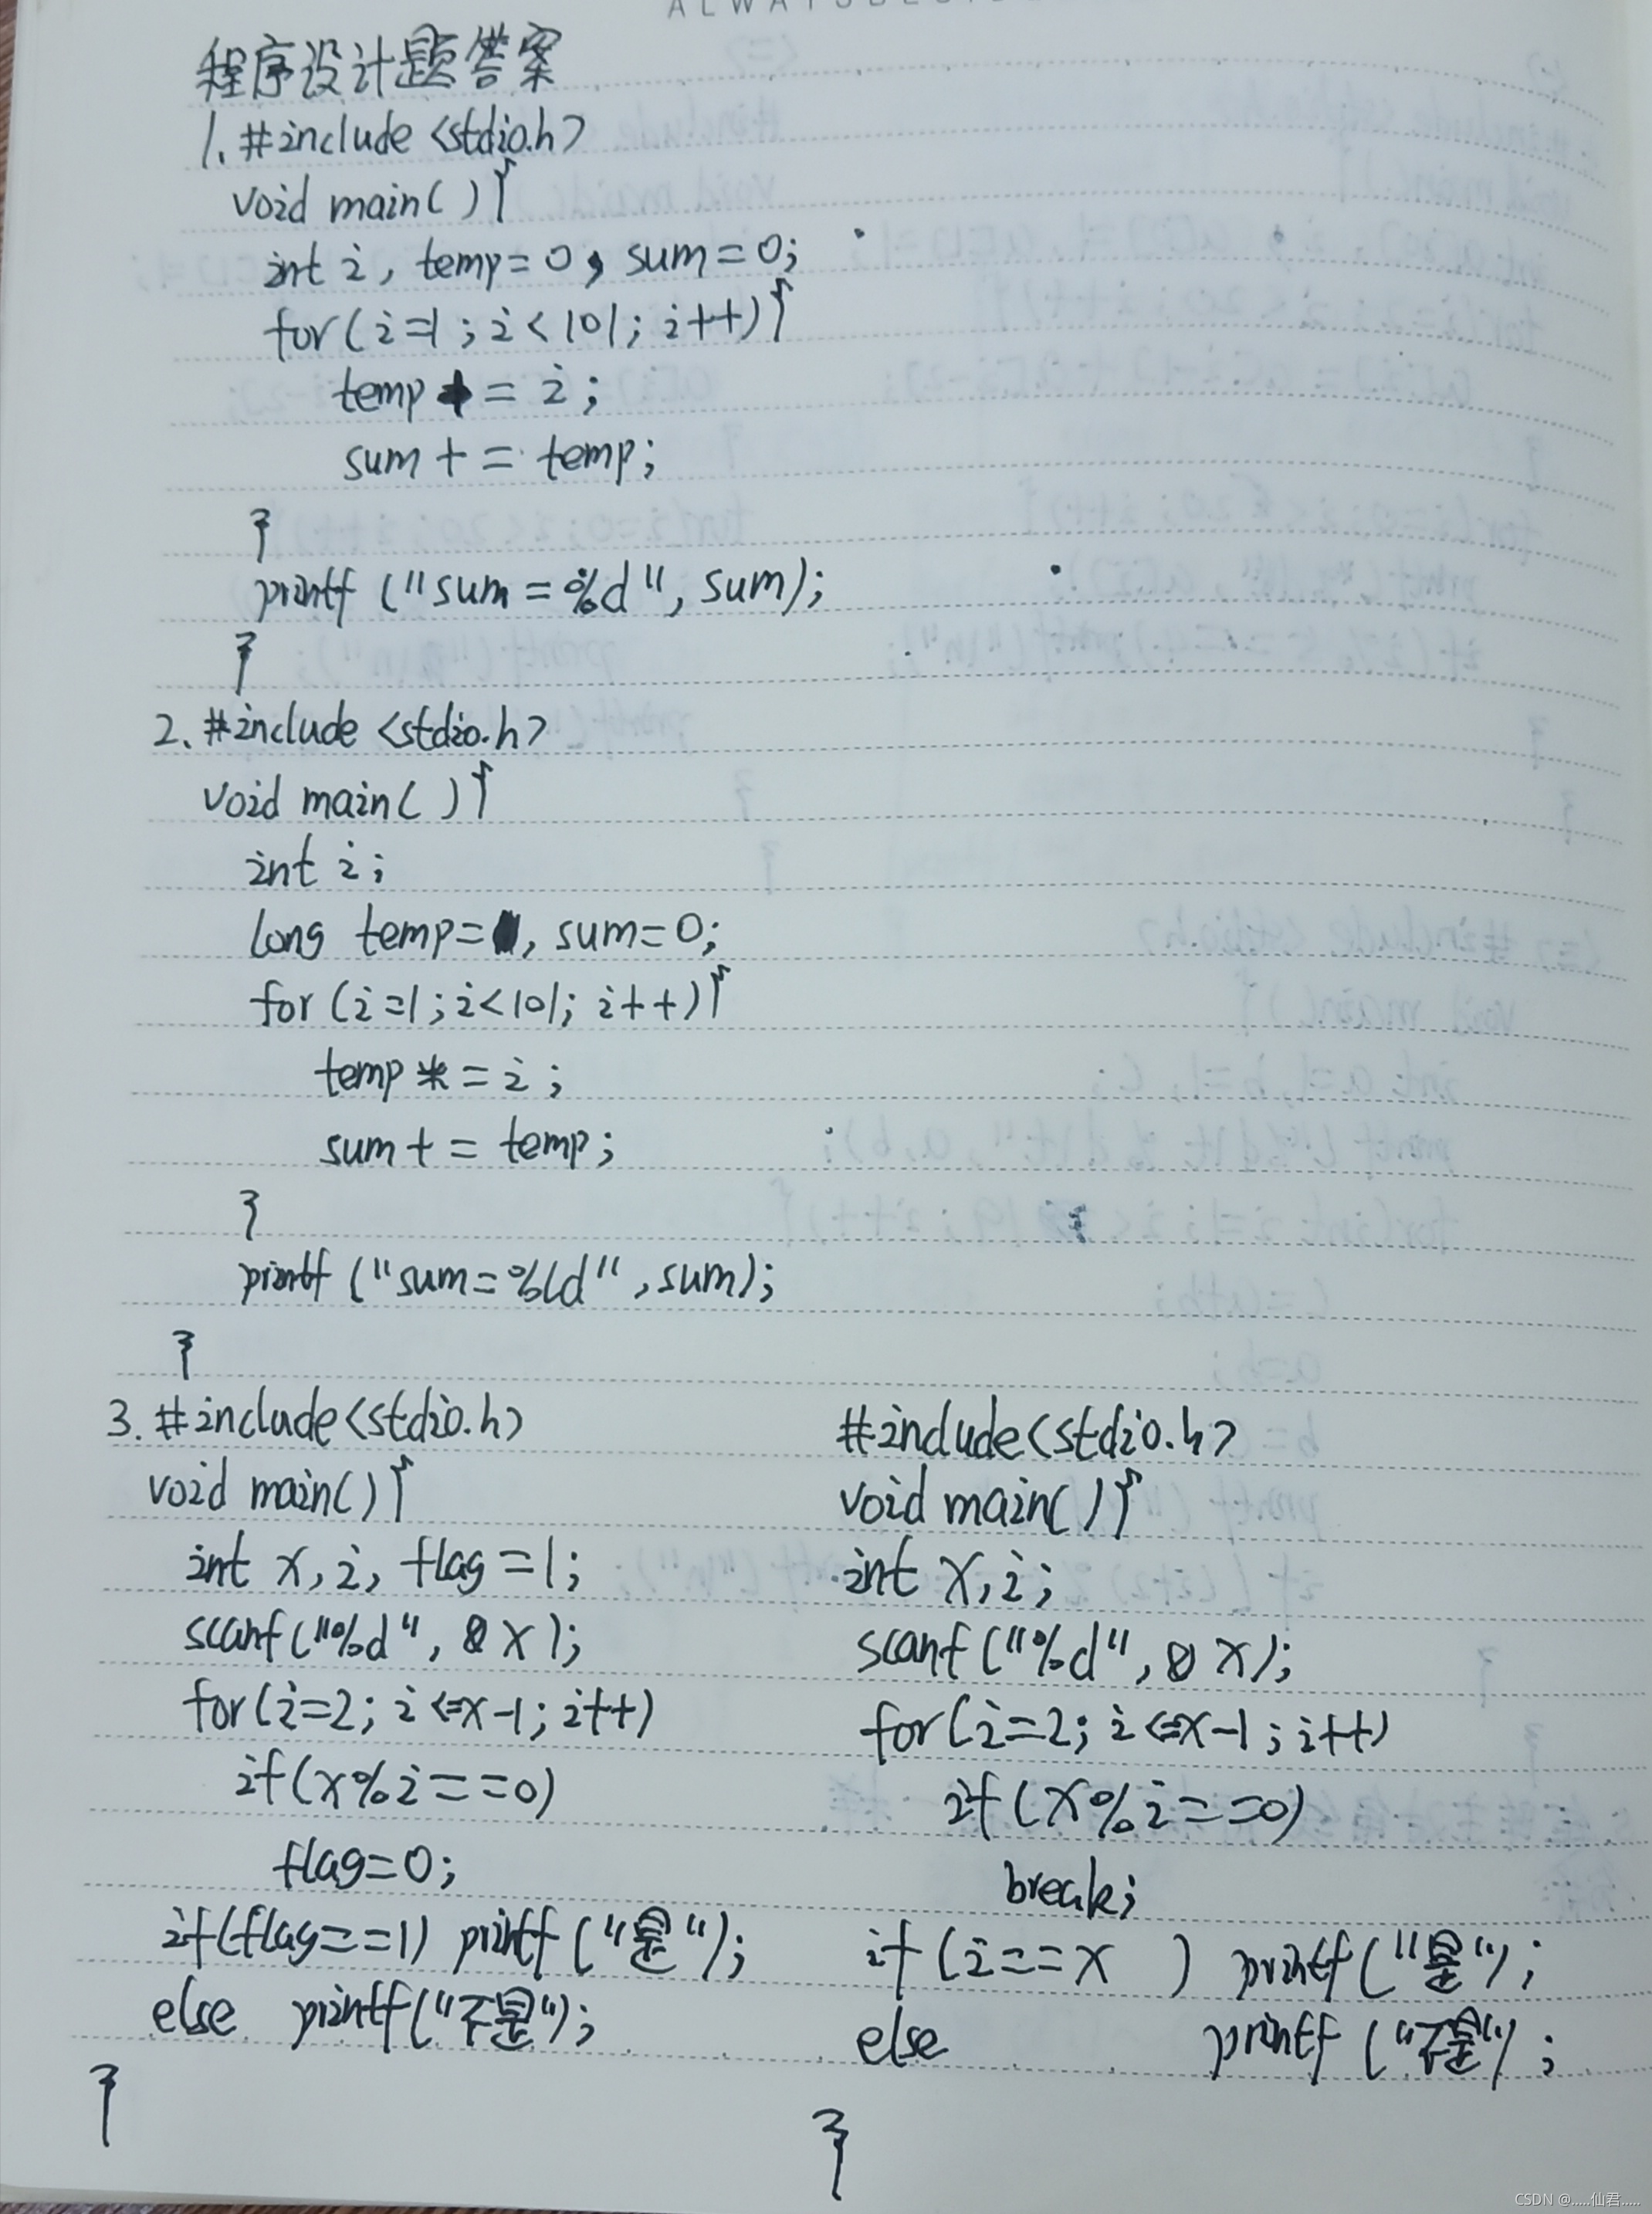 程序设计题答案
1. #include <stdio.h>
void main(){
int i, temp=0, sum=0;
for(i=1; i<101; i++){
temp += i;
sum += temp;
}
printf("sum=%d", sum);
}
2. #include <stdio.h>
void main(){
int i;
long temp= , sum=0;
for(i=1; i<101; i++){
temp *= i;
sum += temp;
}
printf("sum=%ld", sum);
}
3. #include<stdio.h>
void main(){
int x, i, flag=1;
scanf("%d", &x);
for(i=2; i<=x-1; i++)
if(x%i==0)
flag=0;
if(flag==1) printf("是");
else printf("不是");
}
#include<stdio.h>
void main(){
int x, i;
scanf("%d", &x);
for(i=2; i<=x-1; i++)
if(x%i==0)
break;
if(i==x ) printf("是");
else printf("不是");
}
CSDN @.....仙君.....